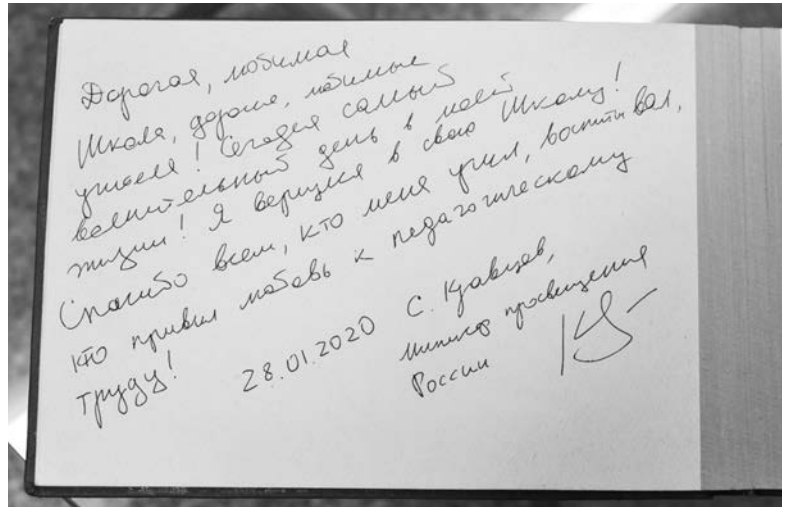 Дорогая, любимая
Школа, дорогие, любимые
учителя! Сегодня самый
волнительный день в моей
жизни! Я вернулся в свою Школу!
Спасибо всем, кто меня учил, воспитывал,
кто привил любовь к педагогическому
труду!
28.01.2020 С. Кравцов,
Министр просвещения
России